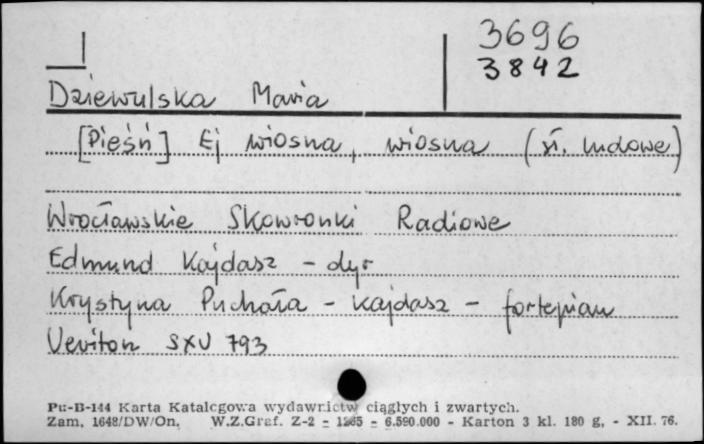 3696
3842
Dziewulska Maria
[Pieśń] Ej wiosna, wiosna (sł. ludowe)
Wrocławskie Skowronki Radiowe
Edmund Kajdasz - dyr
Krystyna Puchała - Kajdasz - fortepian
Veriton SXV 793
Pu-B-144 Karta Katalogowa wydawnictw ciągłych i zwartych.
Zam. 1648/DW/On. W.Z.Graf. Z-2 - 1265 - 6.590.000 - Karton 3 kl. 180 g, - XII. 76.